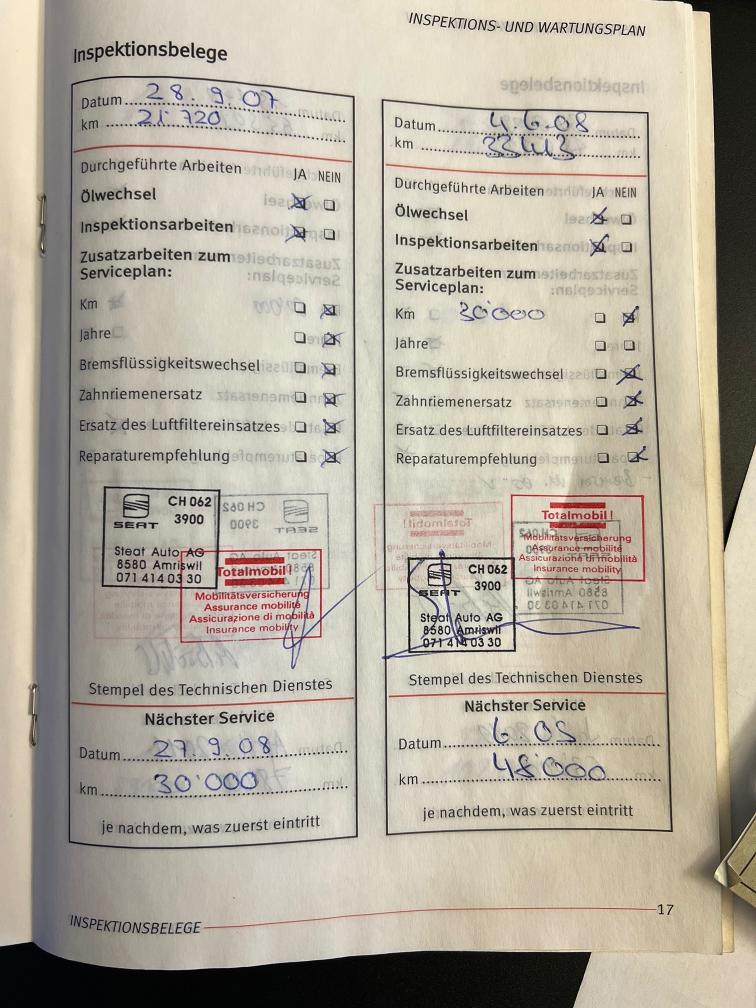 INSPEKTIONS- UND WARTUNGSPLAN
Inspektionsbelege
Datum 28.9.07
km 21'720
Durchgeführte Arbeiten JA NEIN
Ölwechsel
Inspektionsarbeiten
Zusatzarbeiten zum
Serviceplan:
Km
Jahre
Bremsflüssigkeitswechsel
Zahnriemenersatz
Ersatz des Luftfiltereinsatzes
Reparaturempfehlung
SEAT
CH 062
3900
Steat Auto AG
8580 Amriswil
071 414 03 30
Totalmobil!
Mobilitätsversicherung
Assurance mobilité
Assicurazione di mobilità
Insurance mobility
Stempel des Technischen Dienstes
Nächster Service
Datum 27.9.08
km 30'000
je nachdem, was zuerst eintritt
Datum 4.6.08
km
Durchgeführte Arbeiten JA NEIN
Ölwechsel
Inspektionsarbeiten
Zusatzarbeiten zum
Serviceplan:
Km 30'000
Jahre
Bremsflüssigkeitswechsel
Zahnriemenersatz
Ersatz des Luftfiltereinsatzes
Reparaturempfehlung
Totalmobil!
Mobilitätsversicherung
Assurance mobilité
Assicurazione di mobilità
Insurance mobility
SEAT
CH 062
3900
Steat Auto AG
8580 Amriswil
071 414 03 30
Stempel des Technischen Dienstes
Nächster Service
Datum
km 48'000
je nachdem, was zuerst eintritt
INSPEKTIONSBELEGE
17